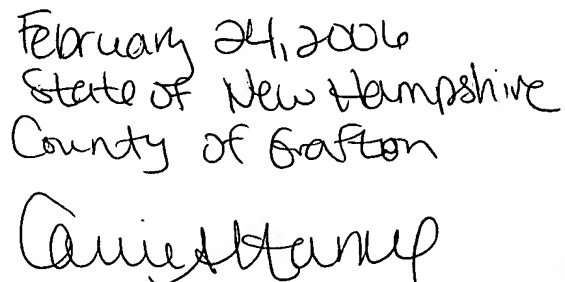 February 24, 2006
State of New Hampshire
County of Grafton
Carrie A